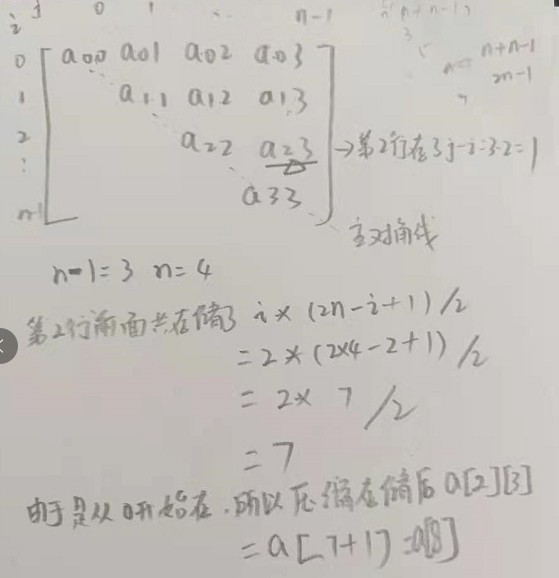 j 0 1 .. n-1
i
0 a00 a01 a02 a03
1 a11 a12 a13
2 a22 a23 →第2行存3 j-i=3-2=1
⋮ a33
n-1 主对角线
n+n-1
2n-1
n-1=3 n=4
第2行前面共存储了 i×(2n-i+1)/2
=2×(2×4-2+1)/2
=2×7/2
=7
由于是从0开始存,所以压缩存储后a[2][3]
=a[7+1]=a[8]